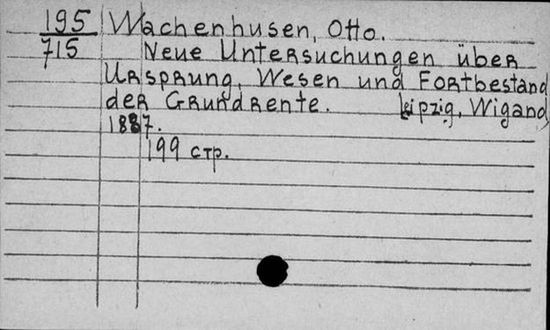 195 Wachenhusen, Otto.
715 Neue Untersuchungen über
Ursprung, Wesen und Fortbestand
der Grundrente. Leipzig, Wigand,
1887.
199 стр.